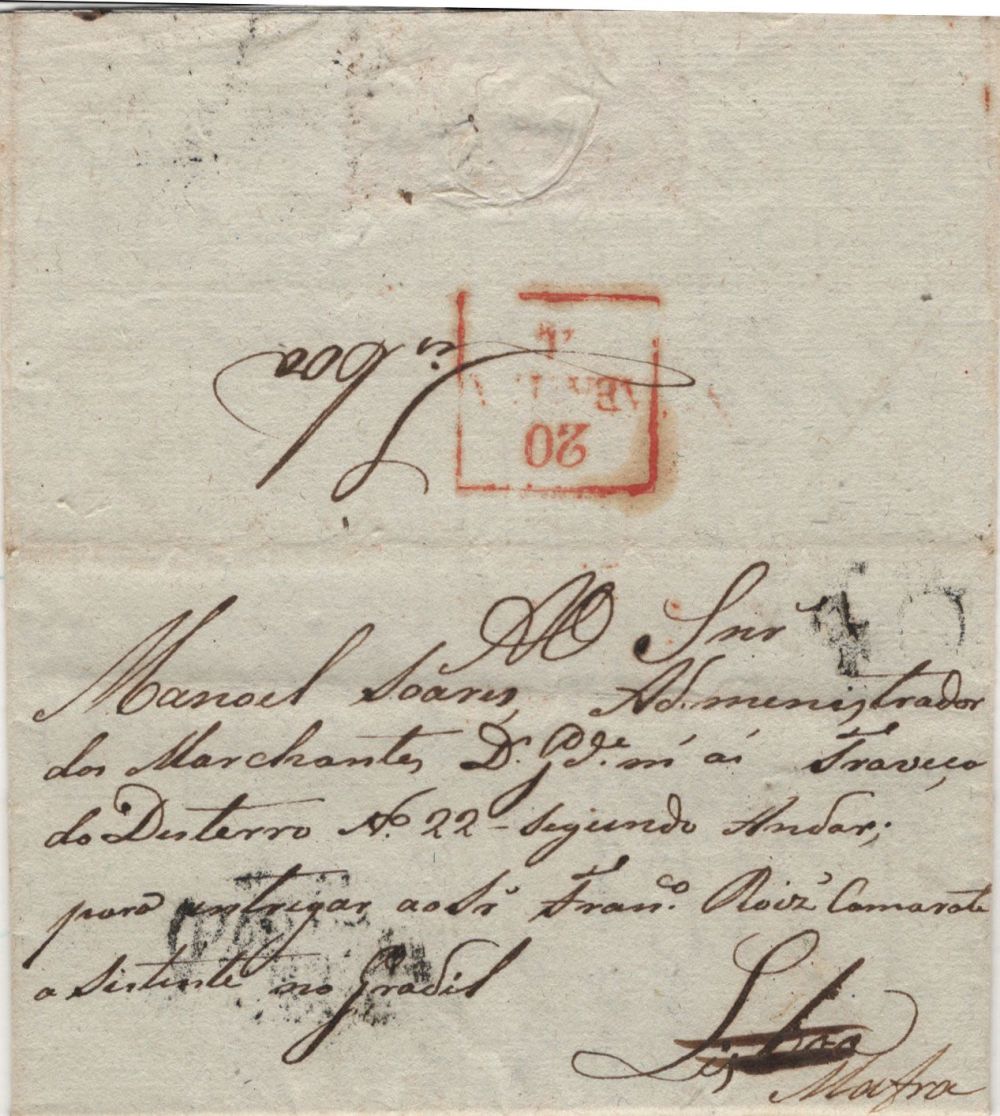 Lisboa
20
Ao Snr
Manoel Soares, Administrador
dos Marchantes D. Gde. m á Traveça
do Desterro N.º 22 - segundo Andar;
para entregar ao Sr Fran.co Roiz Camarate
asistente no Gradil
Lisboa
Mafra